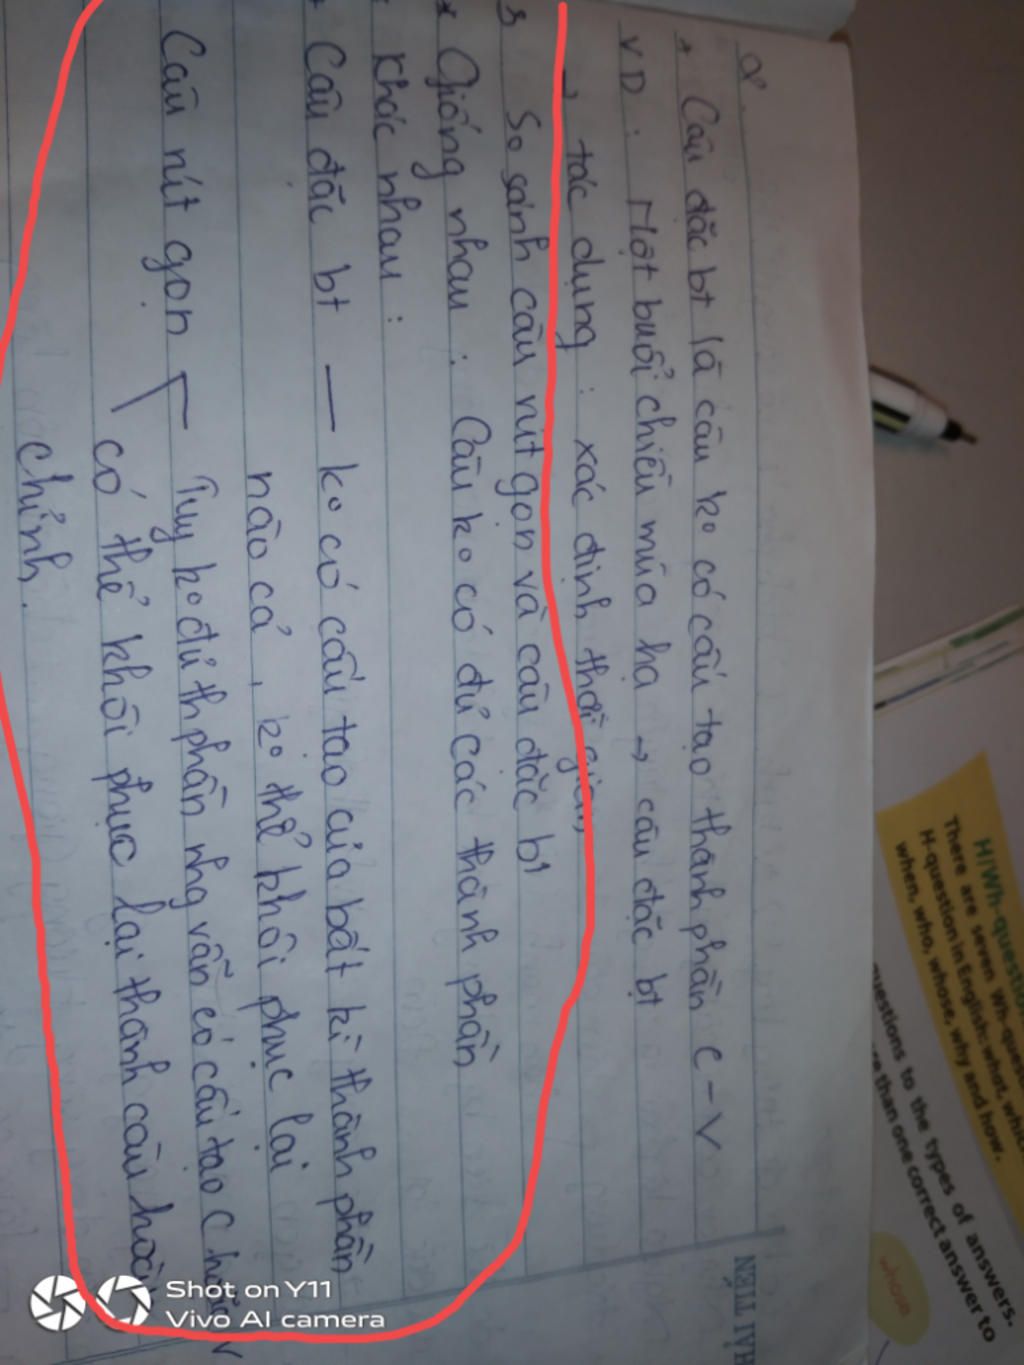 8.
+ Câu đặc bt là câu ko có cấu tạo thành phần C-V
VD: Một buổi chiều mùa hạ → câu đặc bt
→ tác dụng: xác định thời gian
So sánh câu rút gọn và câu đặc bt
* Giống nhau: Câu ko có đủ các thành phần
* Khác nhau:
+ Câu đặc bt — ko có cấu tạo của bất kì thành phần
nào cả, ko thể khôi phục lại
Câu rút gọn Tuy ko đủ thphần nhg vẫn có cấu tạo C hoặc V
có thể khôi phục lại thành câu hoàn
chỉnh.
HẢI TIẾN
H/Wh-question
There are seven Wh-quest
H-question in English: what, which
when, who, whose, why and how.
questions to the types of answers.
more than one correct answer to
whose
Shot on Y11
Vivo AI camera